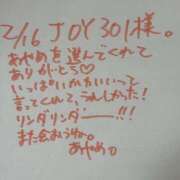 2/16 JOY301様。
あやめを選んでくれて
ありがとう♡
いっぱいかわいいって
言ってくれて、うれしかった!
リンダリンダー———!!!
また会おうね。
あやめ